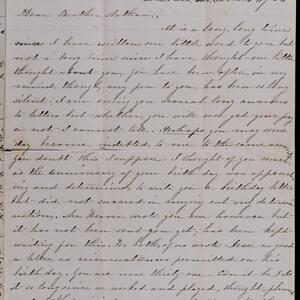 Dear Brother Nathan,
It is a long, long time
since I have written one little word to you but
not a long time since I have thought one little
thought about you. You have been often, in my
mind, though, my pen to you, has been so long
silent. I am owing you several long answers
to letters but whether you will ever get your pay
or not I cannot tell. Perhaps you may some
day become indebted to me to the same
you doubt this I suppose. I thought of you much
as the anniversary of your birthday was approach
ing and determined to write you a birthday letter
but did, not succeed in carrying out my determi
nation. She wrote you one however but
it has not been sent you yet, has been kept
waiting for this. We both
a letter, as circumstances permitted on
birthday. You are now thirty one
it so long since we worked and played, thought,